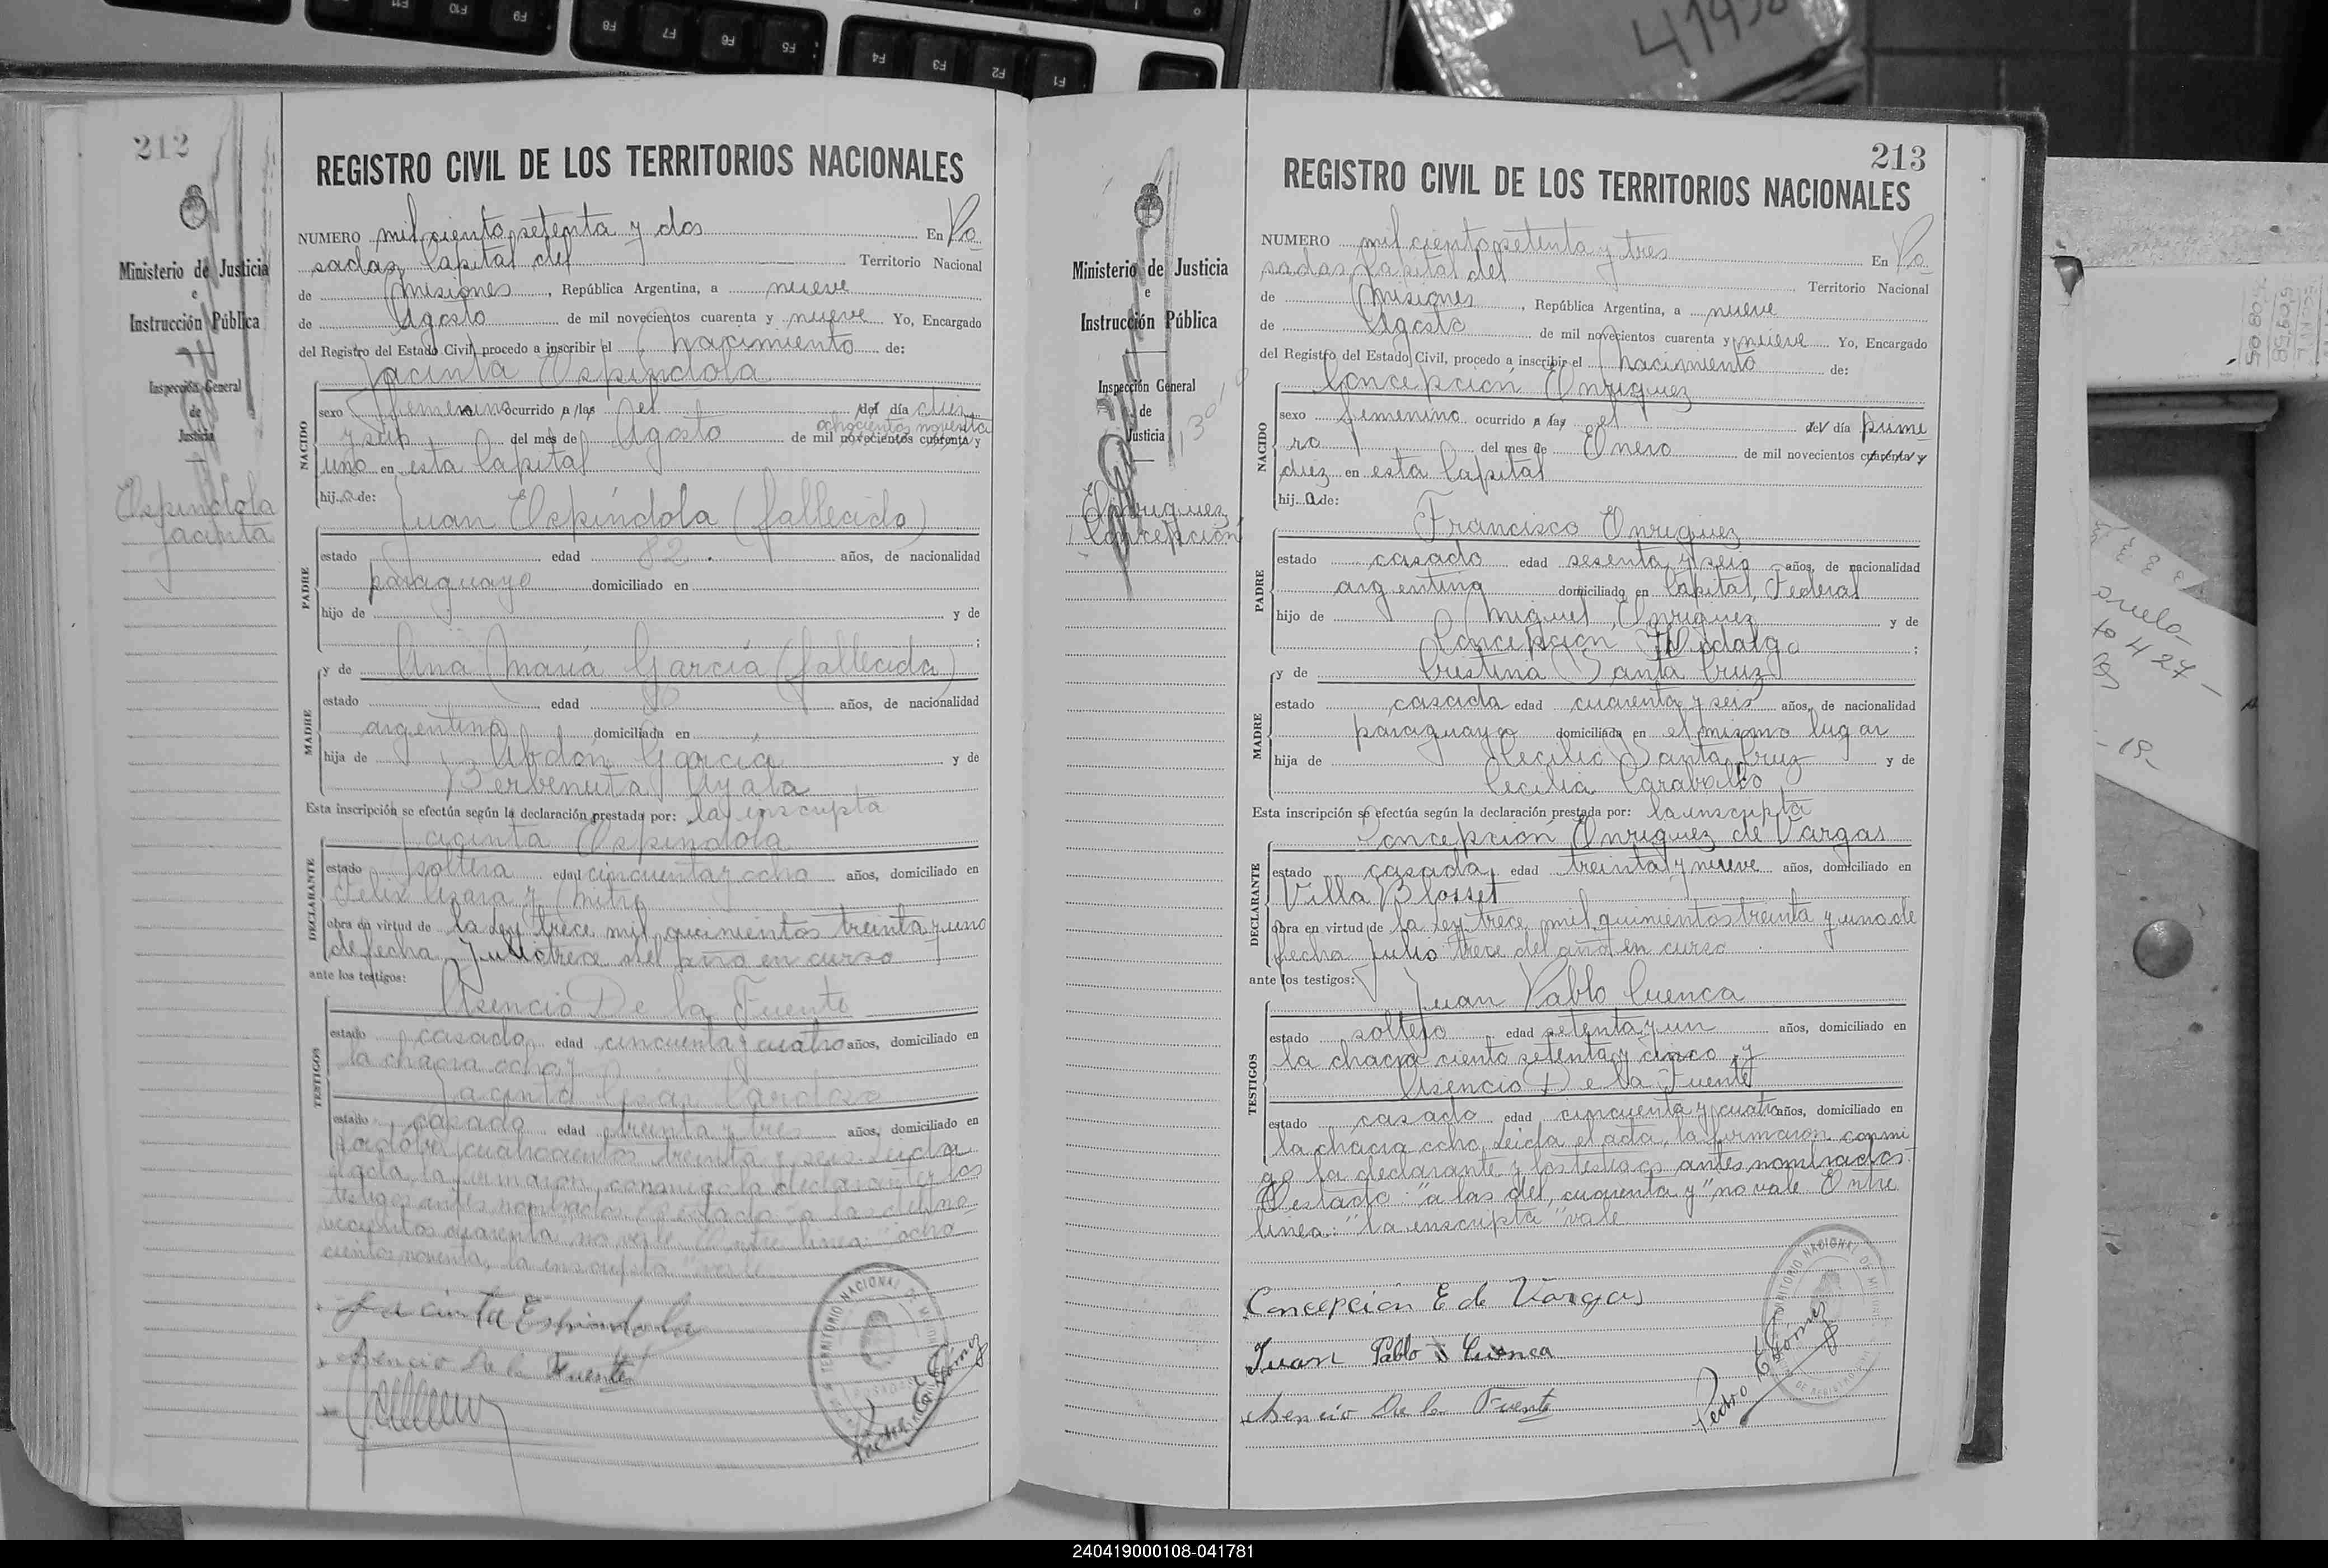 F11 F10 F9 F8 F7 F6 F5 F4 F3 F2 F1
212
REGISTRO CIVIL DE LOS TERRITORIOS NACIONALES
Ministerio de Justicia
e
Instrucción Pública
Inspección General
de
Justicia
Espíndola
Jacinta
NUMERO mil ciento setenta y dos En Po
sadas, Capital del Territorio Nacional
de Misiones, República Argentina, a nueve
de Agosto de mil novecientos cuarenta y nueve Yo, Encargado
del Registro del Estado Civil, procedo a inscribir el nacimiento de:
Jacinta Espíndola
NACIDO
sexo femenino ocurrido a las el del día diez
y seis del mes de Agosto de mil novecientos cuarenta y
ochocientos noventa
uno en esta Capital
hija de:
Juan Espíndola (fallecido)
PADRE
estado edad 82 años, de nacionalidad
paraguayo domiciliado en
hijo de y de
y de Ana María García (fallecida)
MADRE
estado edad años, de nacionalidad
argentina domiciliada en
hija de Abdón García y de
Ayala
Esta inscripción se efectúa según la declaración prestada por: la inscripta
Jacinta Espíndola
DECLARANTE
estado soltera edad cincuenta y ocho años, domiciliado en
Felix Azara y Mitre
obra en virtud de la Ley trece mil quinientos treinta y uno
de fecha Julio trece del año en curso
ante los testigos:
Asencio De la Fuente
TESTIGOS
estado casado edad cincuenta y cuatro años, domiciliado en
la chacra ocho y
Jacinto Cesar Cardozo
estado casado edad treinta y tres años, domiciliado en
Cordoba cuatrocientos treinta y seis. Leida
el acta, la firmaron conmigo la declarante y los
testigos antes nombrados. Testado: "a las del no
vecientos cuarenta" no vale. Entre linea: "ocho
cientos noventa, la inscripta" vale
Jacinta Espindola
Asencio De la Fuente
TERRITORIO NACIONAL DE MISIONES
POSADAS
213
REGISTRO CIVIL DE LOS TERRITORIOS NACIONALES
Ministerio de Justicia
e
Instrucción Pública
Inspección General
de
Justicia
Enriquez
Concepción
NUMERO mil ciento setenta y tres En Po
sadas Capital del Territorio Nacional
de Misiones, República Argentina, a nueve
de Agosto de mil novecientos cuarenta y nueve Yo, Encargado
del Registro del Estado Civil, procedo a inscribir el nacimiento de:
Concepción Enriquez
NACIDO
sexo femenino ocurrido a las el del día prime
ro del mes de Enero de mil novecientos cuarenta y
diez en esta Capital
hija de:
Francisco Enriquez
PADRE
estado casado edad sesenta y seis años, de nacionalidad
argentina domiciliado en Capital Federal
hijo de Miguel Enriquez y de
Concepción Hidalgo;
y de Cristina Santa Cruz
MADRE
estado casada edad cuarenta y seis años, de nacionalidad
paraguaya domiciliada en el mismo lugar
hija de Cecilio Santa Cruz y de
Cecilia Caraballo
Esta inscripción se efectúa según la declaración prestada por: la inscripta
Concepción Enriquez de Vargas
DECLARANTE
estado casada edad treinta y nueve años, domiciliado en
Villa Blosset
obra en virtud de la Ley trece mil quinientos treinta y uno de
fecha Julio trece del año en curso
ante los testigos:
Juan Pablo Cuenca
TESTIGOS
estado soltero edad setenta y un años, domiciliado en
la chacra ciento setenta y cinco y
Asencio De la Fuente
estado casado edad cincuenta y cuatro años, domiciliado en
la chacra ocho. Leida el acta, la firmaron conmi
go la declarante y los testigos antes nombrados.
Testado: "a las del, cuarenta y" no vale. Entre
linea: "la inscripta" vale
Concepción E de Vargas
Juan Pablo Cuenca
Asencio De la Fuente
Pedro E Gómez
TERRITORIO NACIONAL DE MISIONES
240419000108-041781